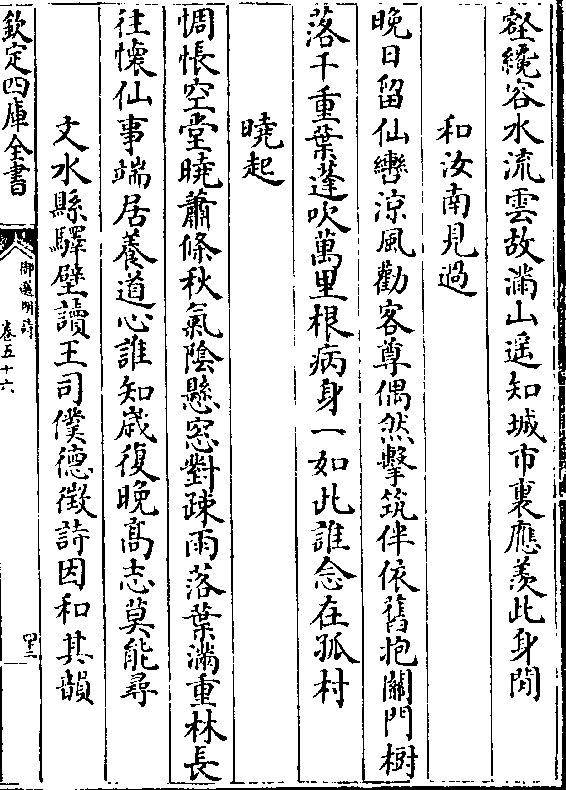 壑纔容水流雲故滿山遥知城市裏應羨此身閒
和汝南見過
晩日留仙轡涼風勸客尊偶然擊筑伴依舊抱關門樹
落千重葉蓬吹萬里根病身一如此誰念在孤村
曉起
惆悵空堂曉蕭條秋氣陰懸窓對疎雨落葉滿重林長
往懐仙事端居養道心誰知歳復晚髙志莫能尋
文水縣驛壁讀王司僕德徴詩因和其韻
欽定四庫全書
御選明詩
卷五十六
四三